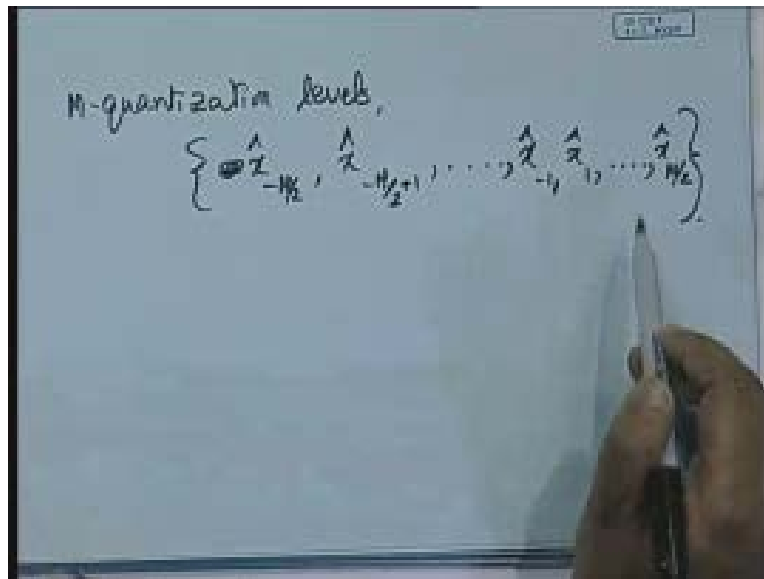 M-quantization levels,
{ x̂_{-M/2}, x̂_{-M/2+1}, ....., x̂_{-1}, x̂_{1}, ...., x̂_{M/2} }.